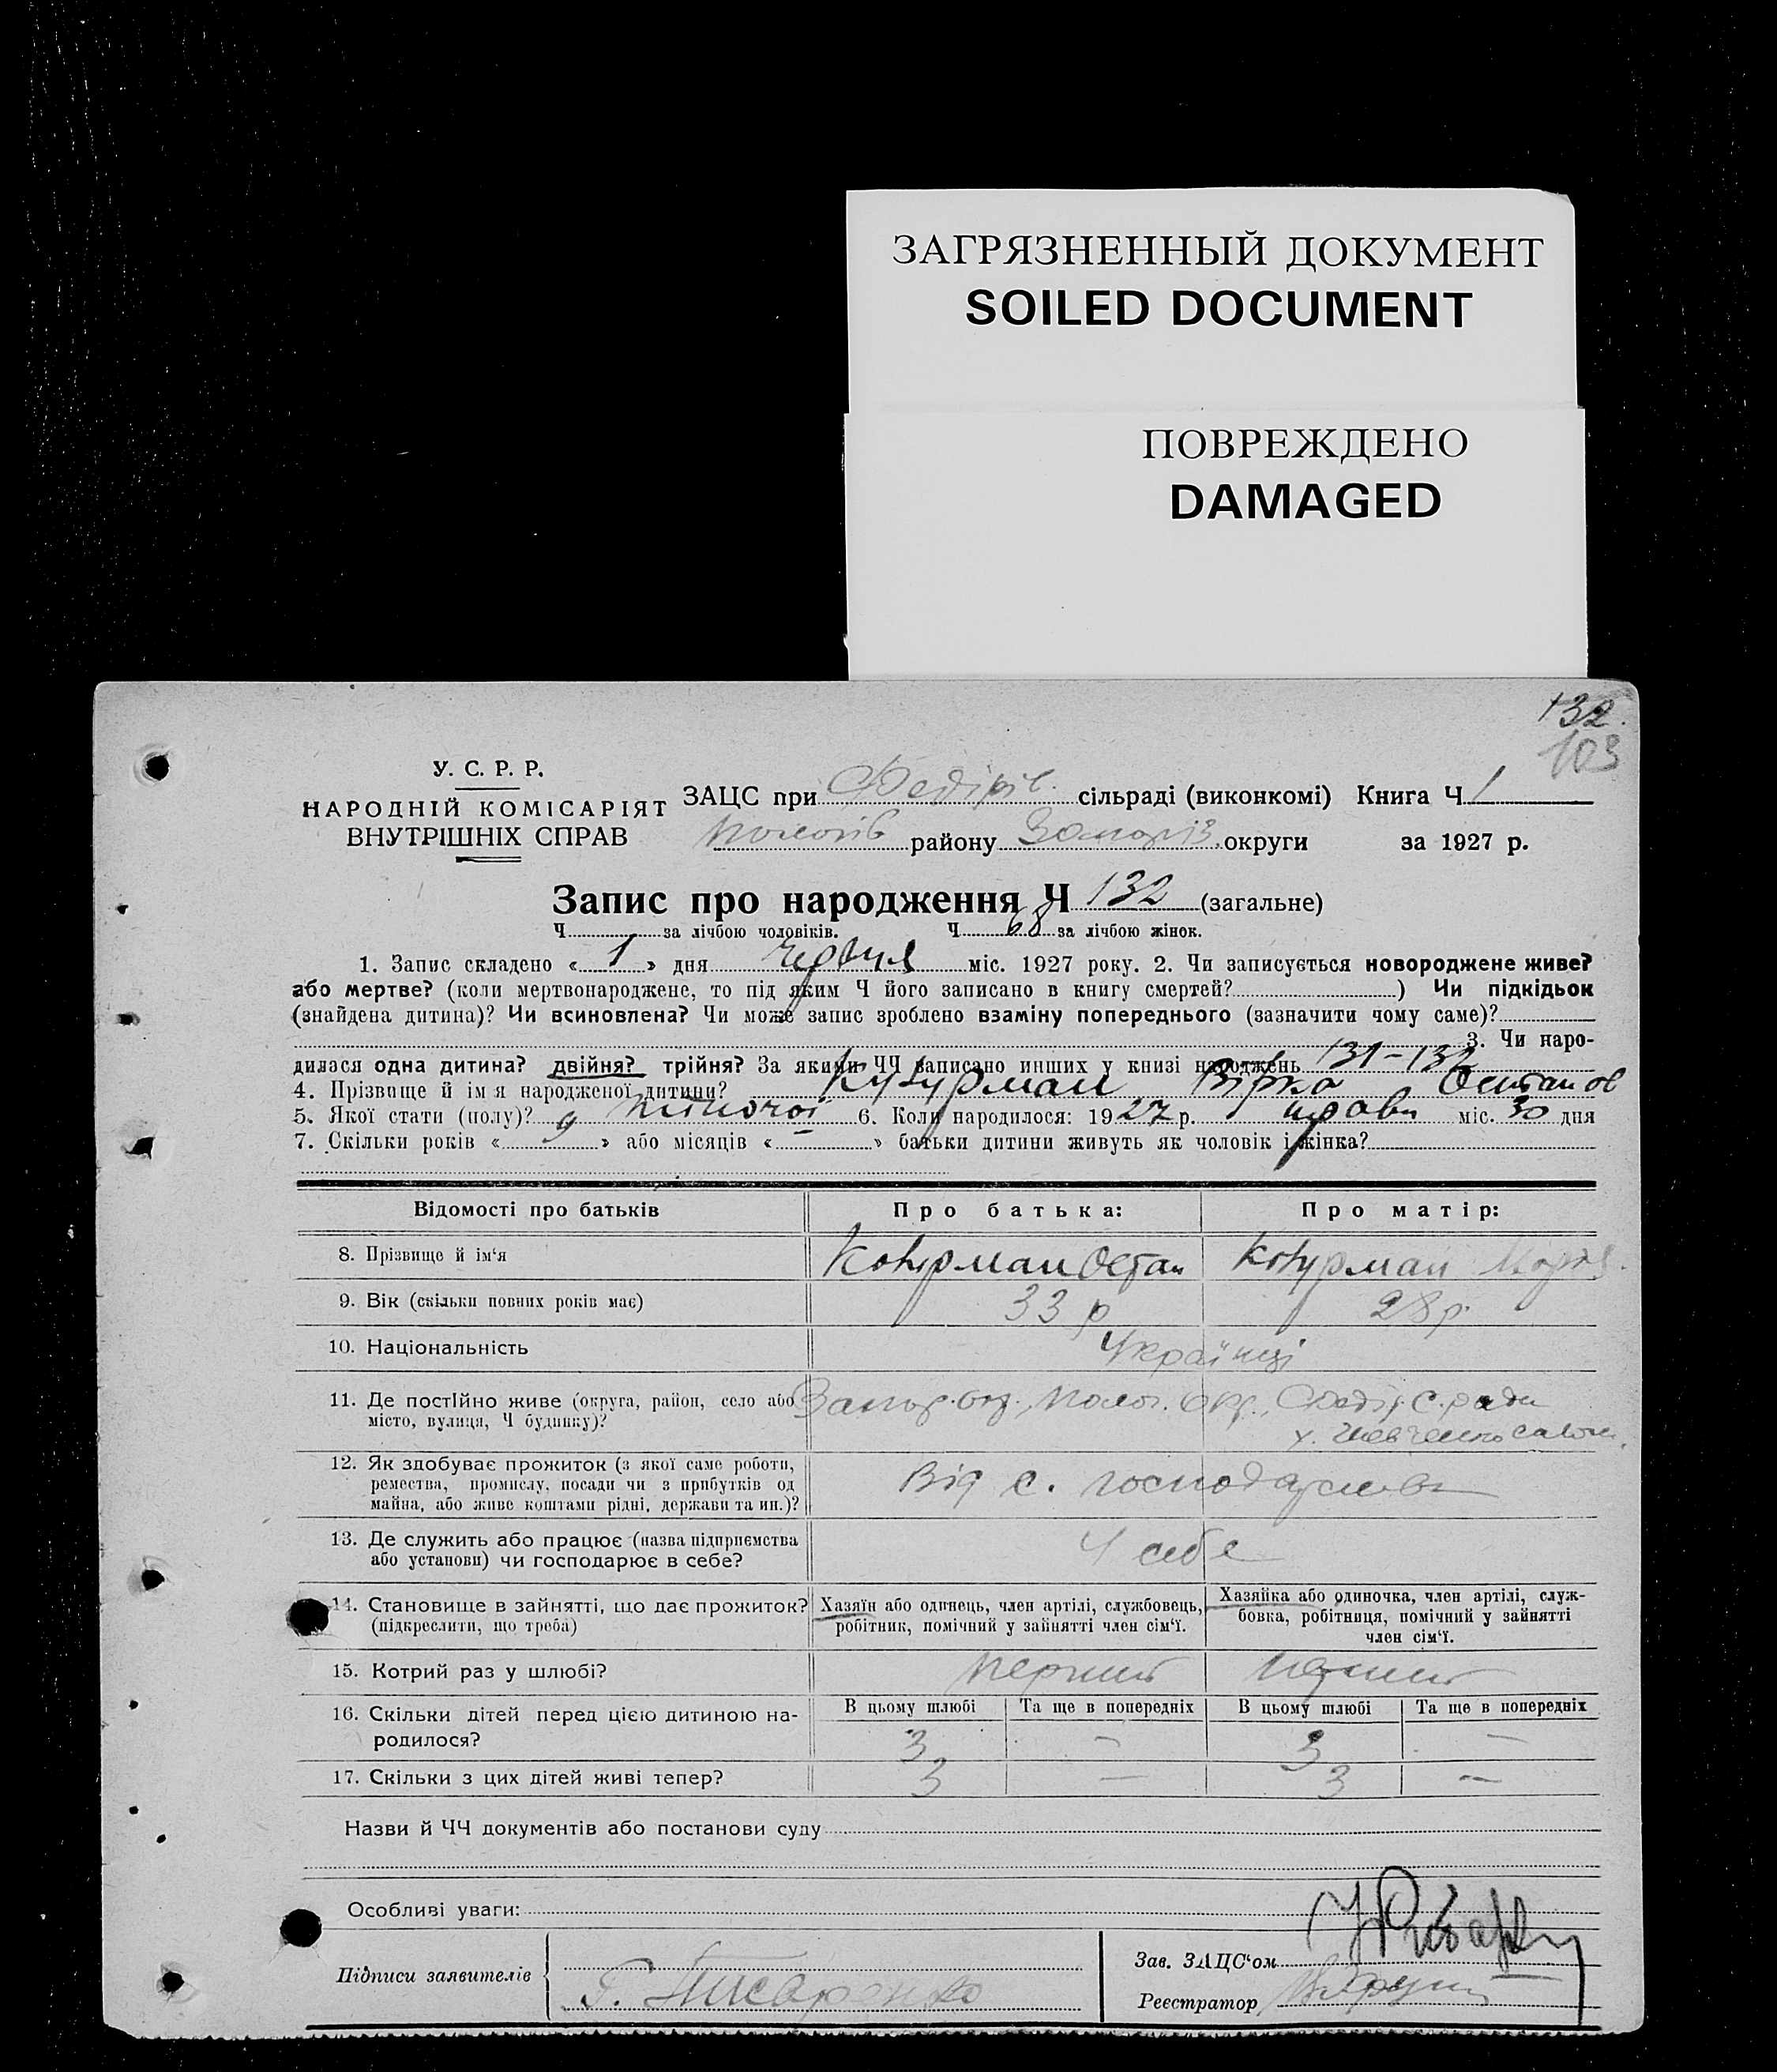 ЗАГРЯЗНЕННЫЙ ДОКУМЕНТ
SOILED DOCUMENT
ПОВРЕЖДЕНО
DAMAGED
132.
103
У. С. Р. Р.
НАРОДНІЙ КОМІСАРІЯТ
ВНУТРІШНІХ СПРАВ
ЗАЦС при Федірів. сільраді (виконкомі) Книга Ч 1
Пологів району Запоріз. округи за 1927 р.
Запис про народження Ч 132 (загальне)
Ч за лічбою чоловіків. Ч 68 за лічбою жінок.
1. Запис складено « 1 » дня червня міс. 1927 року. 2. Чи записується новороджене живе?
або мертве? (коли мертвонароджене, то під яким Ч його записано в книгу смертей? ) Чи підкідьок
(знайдена дитина)? Чи всиновлена? Чи може запис зроблено взаміну попереднього (зазначити чому саме)?
3. Чи наро-
дилася одна дитина? двійня? трійня? За якими ЧЧ записано инших у книзі народжень 131-132
4. Прізвище й ім я народженої дитини? Вірка
5. Якої стати (полу)? жіночої 6. Коли народилося: 1927 р. травн міс. 30 дня
7. Скільки років « 9 » або місяців « — » батьки дитини живуть як чоловік і жінка?
Відомості про батьків Про батька: Про матір:
8. Прізвище й ім‘я Остап
9. Вік (скільки повних років має) 33 р 28 р.
10. Національність Українці
11. Де постійно живе (округа, район, село або
місто, вулиця, Ч будинку)?
12. Як здобуває прожиток (з якої саме роботи,
ремества, промислу, посади чи з прибутків од
майна, або живе коштами рідні, держави та ин.)? Від с. господарства
13. Де служить або працює (назва підприємства
або установи) чи господарює в себе? У себе
14. Становище в зайнятті, що дає прожиток?
(підкреслити, що треба)
Хазяїн або одинець, член артілі, службовець,
робітник, помічний у зайнятті член сім‘ї.
Хазяйка або одиночка, член артілі, служ-
бовка, робітниця, помічний у зайнятті
член сім‘ї.
15. Котрий раз у шлюбі? перший перший
16. Скільки дітей перед цією дитиною на-
родилося?
В цьому шлюбі Та ще в попередніх В цьому шлюбі Та ще в попередніх
3 — 3 —
17. Скільки з цих дітей живі тепер? 3 — 3 —
Назви й ЧЧ документів або постанови суду
Особливі уваги:
Підписи заявителів Г. Писаренко
Зав. ЗАЦС‘ом
Реєстратор